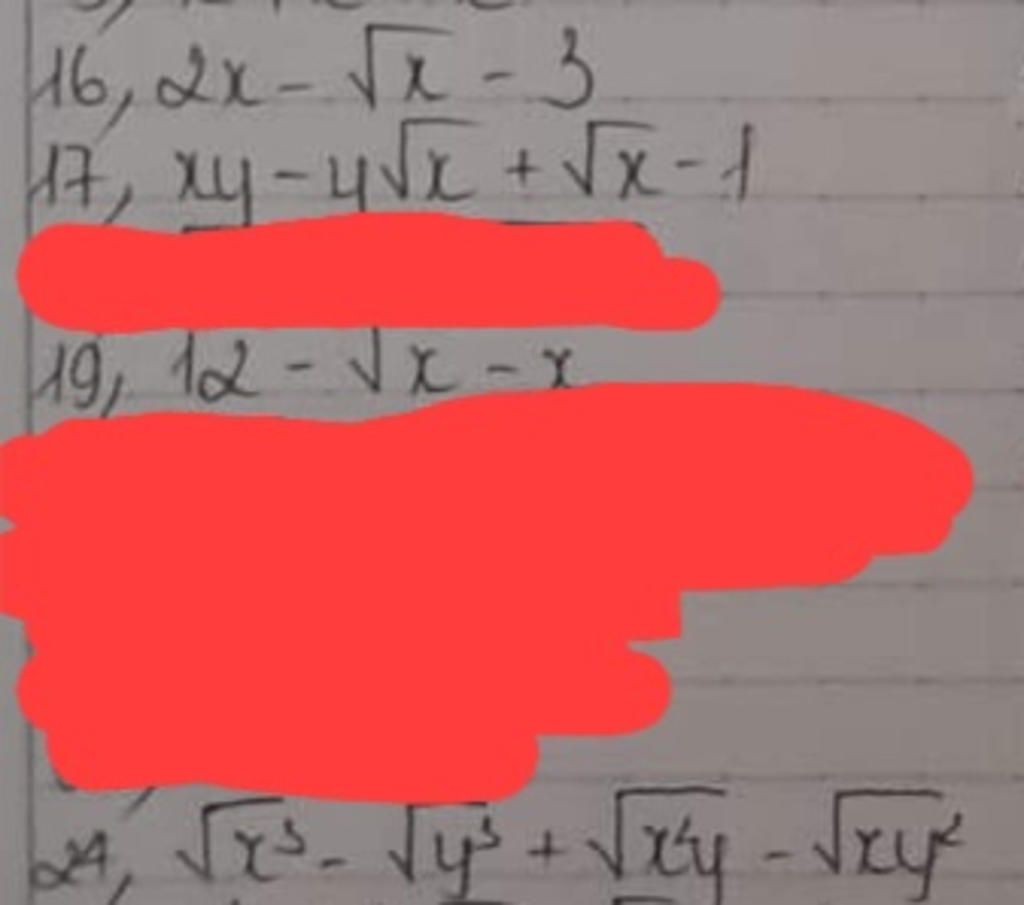 16, 2x - √x - 3
17, xy - y√x + √x - 1
19, 12 - √x - x
24, √x³ - √y³ + √x²y - √xy²